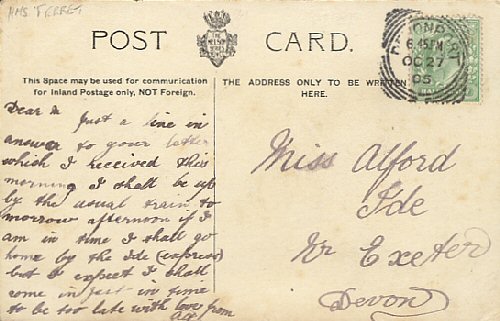 HMS FERRET
POST CARD.
THE NELSON SERIES
This Space may be used for communication
for Inland Postage only, NOT Foreign.
THE ADDRESS ONLY TO BE WRITTEN
HERE.
DEVONPORT
6.45 PM
OC 27
05
Dear
Just a line in
answer to your letter
which I received this
morning I shall be up
by the usual train to
morrow afternoon if I
am in time I shall go
home by the Ide (express)
but I expect I shall
come in just in time
to be too late with love from
Miss Alford
Ide
Nr Exeter
Devon